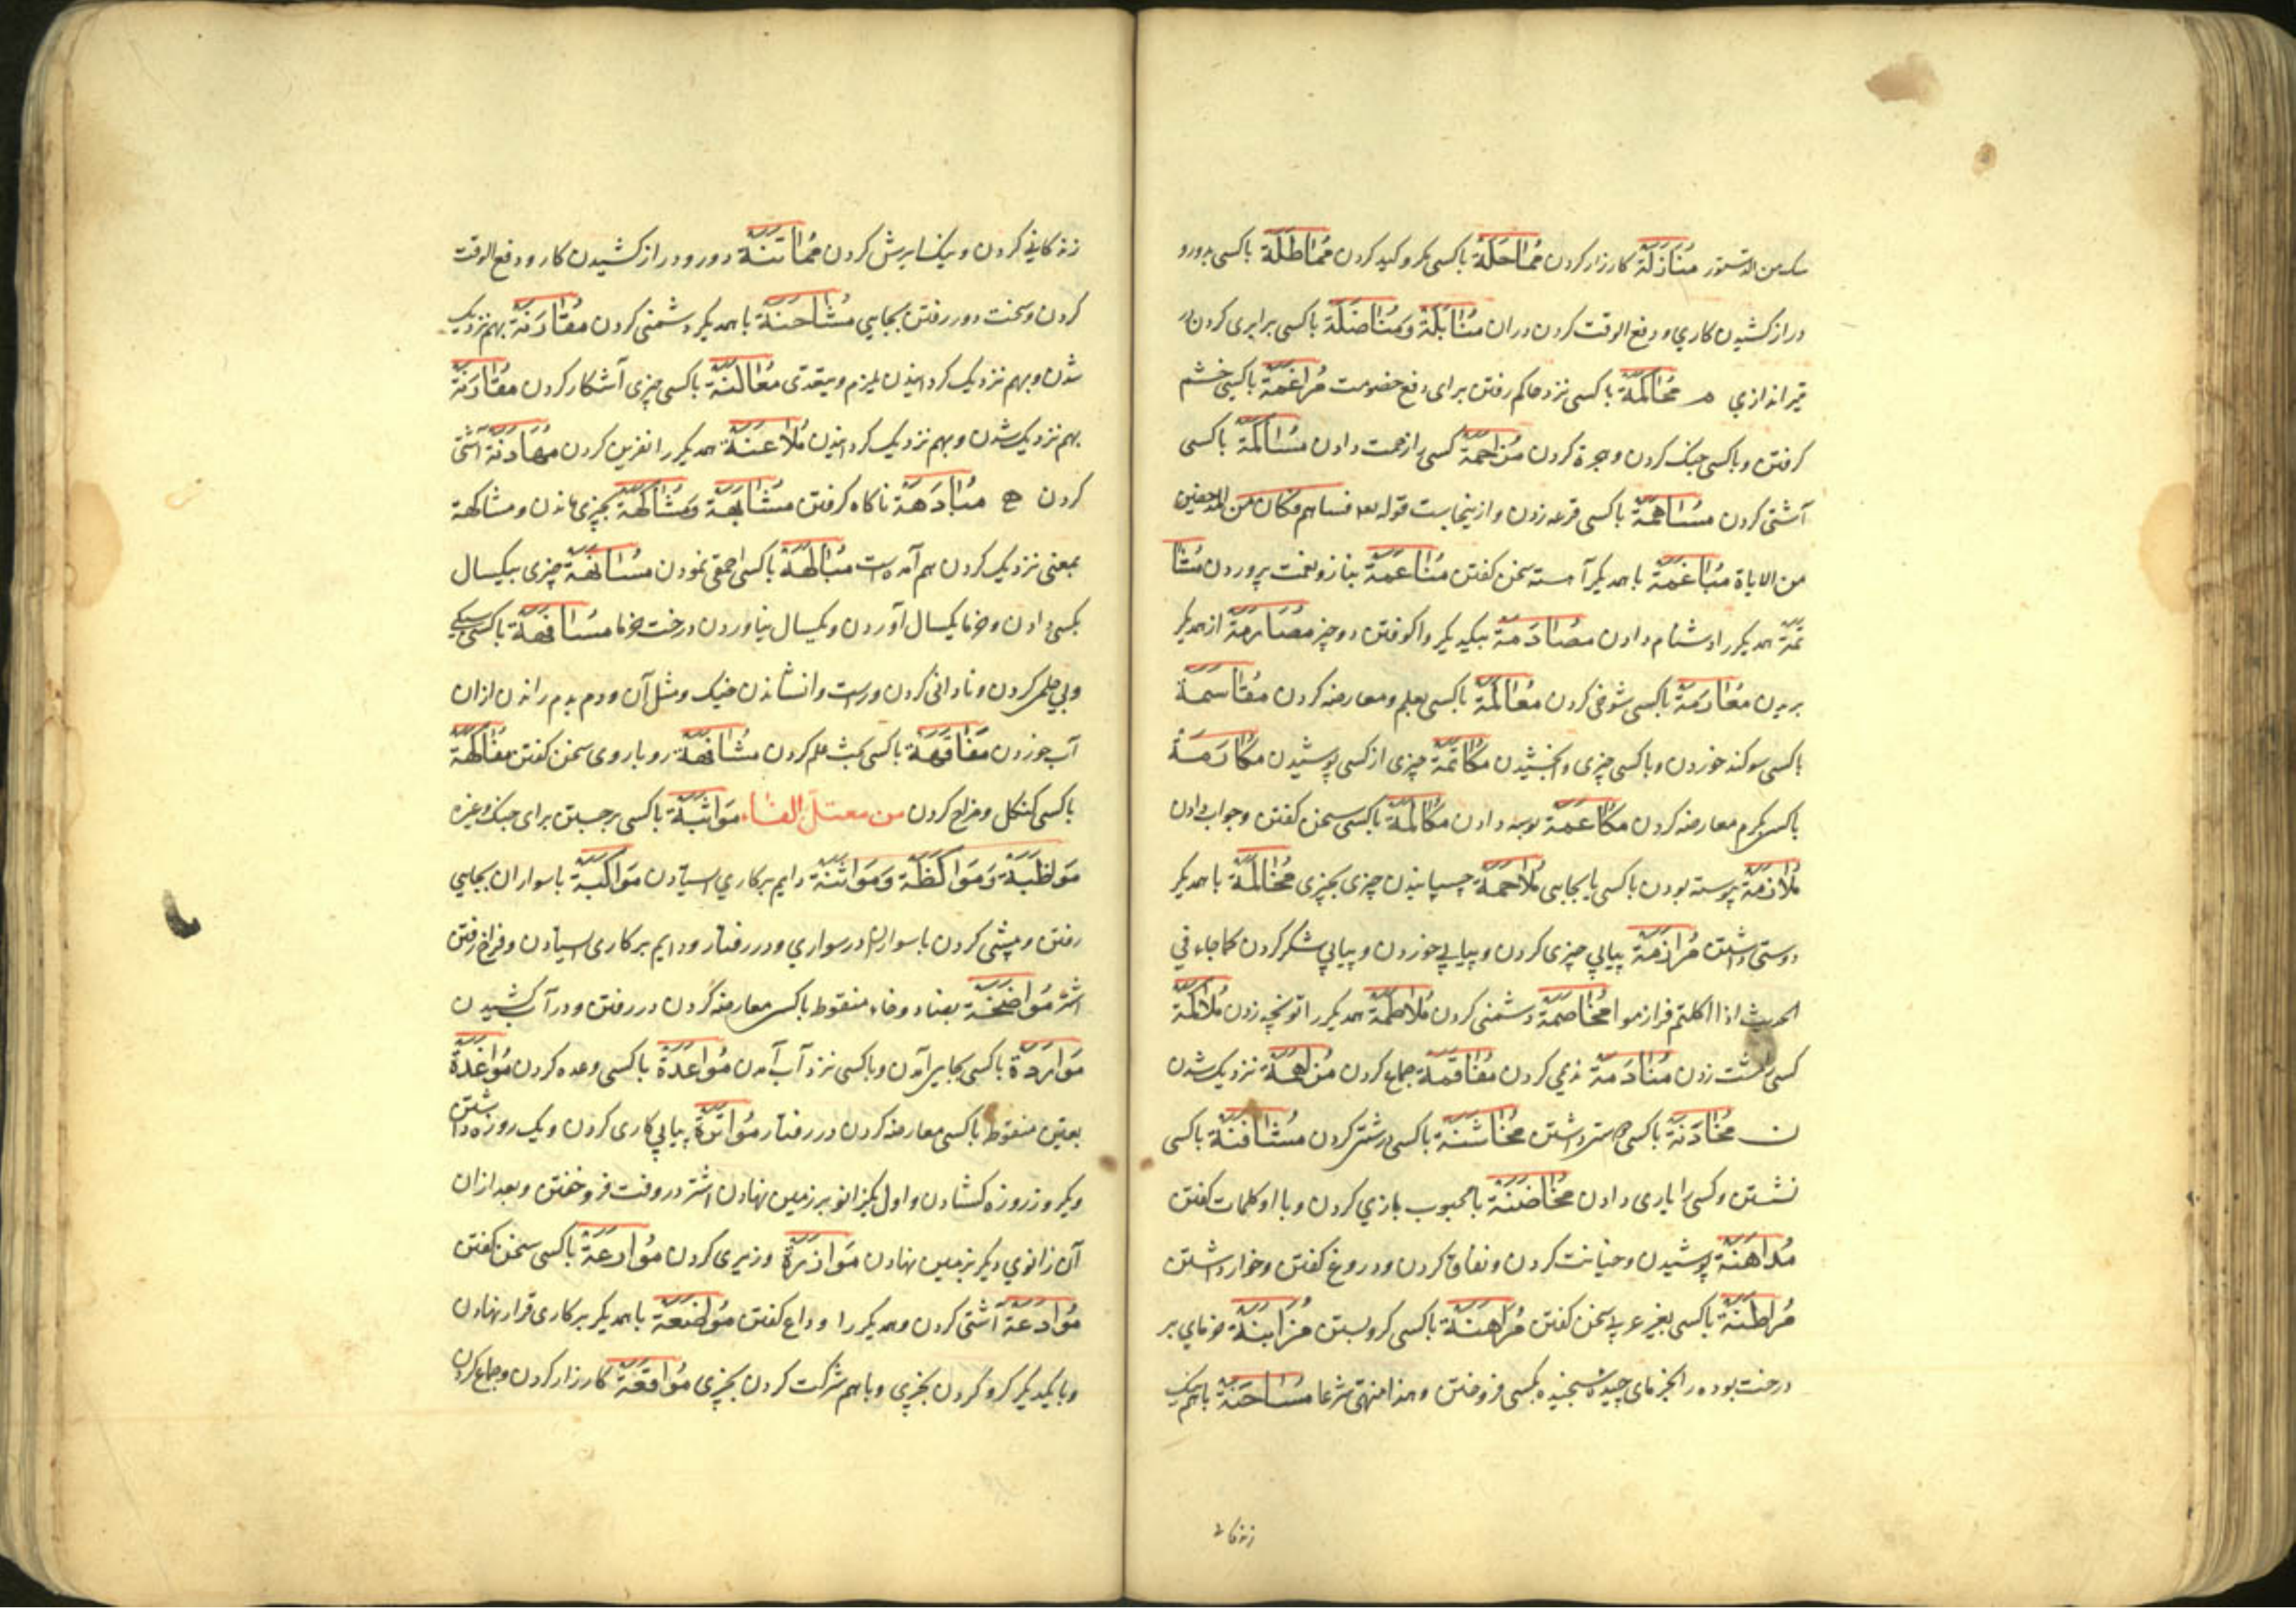 من الدستور مُنَازَلَة کارزار کردن مُمَاحَلَة باکسی مکر و کید کردن مُمَاطَلَة باکسی بدورو
دراز کشیدن کاری و دفع الوقت کردن دران مُنَابَلَة وَمُنَاضَلَة باکسی برابری کردن در
تیر اندازی م مُحَاکَمَة باکسی نزد حاکم رفتن برای دفع خصومت مُرَاغَمَة باکسی خشم
کرفتن و باکسی جنک کردن و هجرة کردن مُزَاحَمَة کسی را زحمت دادن مُسَالَمَة باکسی
آشتی کردن مُسَاهَمَة باکسی قرعه زدن و ازینجاست قوله فساهم فکان من المدحضین
من الایاة مُبَاغَمَة با همدیکر آهسته سخن کفتن مُنَاعَمَة بناز و نعمت پروردن مُشَا
تَمَة همدیکر را دشنام دادن مُصَادَمَة بیکدیکر واکوفتن دو چیز مُصَارَمَة از همدیکر
بریدن مُعَارَمَة باکسی شوخی کردن مُعَالَمَة باکسی بعلم معارضه کردن مُقَاسَمَة
باکسی سوکند خوردن و باکسی چیزی وابخشیدن مُکَاتَمَة چیزی از کسی پوشیدن مُکَارَمَة
باکسی بکرم معارضه کردن مُکَاعَمَة بوسه دادن مُکَالَمَة باکسی سخن کفتن و جواب دادن
مُلَازَمَة پیوسته بودن باکسی یا بجایی مُلَاحَمَة چسپانیدن چیزی بچیزی مُخَالَمَة با همدیکر
دوستی داشتن مُرَازَمَة پیاپی چیزی کردن و پیاپی خوردن و پیاپی شکر کردن کما جاء فی
الحدیث اذا اکلتم فرازموا مُخَاصَمَة دشمنی کردن مُلَاطَمَة همدیکر را تونچه زدن مُلَاکَمَة
کسی را مشت زدن مُنَادَمَة ندیمی کردن مُفَاقَمَة جماع کردن مُزَاهَمَة نزدیک شدن
ن مُخَادَنَة باکسی دوستی داشتن مُخَاشَنَة باکسی درشتی کردن مُثَافَنَة باکسی
نشستن و کسی را یاری دادن مُخَاضَنَة با محبوب بازی کردن و با او کلمات کفتن
مُدَاهَنَة پوشیدن و خیانت کردن و نفاق کردن و دروغ کفتن و خوار داشتن
مُرَاطَنَة باکسی بغیر عربی سخن کفتن مُرَاهَنَة باکسی کرو بستن مُزَابَنَة خرمای بر
درخت بوده را بخرمای چیده سنجیده بکسی فروختن و هذا منهی شرعا مُسَاحَنَة باهم نیک
زندکانی
زندکانی کردن و نیک پرسش کردن مُمَاتَنَة دور و دراز کشیدن کار و دفع الوقت
کردن و سخت دور رفتن بجایی مُشَاحَنَة با همدیکر دشمنی کردن مُقَارَنَة بهم نزدیک
شدن و بهم نزدیک کردانیدن یلزم و یتعدی مُعَالَنَة باکسی چیزی آشکار کردن مُقَارَنَة
بهم نزدیک شدن و بهم نزدیک کردانیدن مُلَاعَنَة همدیکر را نفرین کردن مُهَادَنَة آشتی
کردن ه مُبَادَهَة ناکاه کرفتن مُشَابَهَة وَمُشَاکَهَة بچیزی ماندن و مشاکهة
بمعنی نزدیک کردن هم آمده است مُبَالَهَة باکسی احمقی نمودن مُسَانَهَة چیزی بیکسال
بکسی دادن و خرما یکسال آوردن و یکسال نیاوردن درخت خرما مُسَافَهَة باکسی سبکی
و بی حلمی کردن و نادانی کردن و راست وانشاندن خیک و مثل آن و دم بدم راندن ازان
آب خوردن مُفَاقَهَة باکسی بحث علم کردن مُشَافَهَة روباروی سخن کفتن مُفَاکَهَة
باکسی کنکل و مزاح کردن من معتل الفاء مُوَاثَبَة باکسی برجستن برای جنک و غیره
مُوَاظَبَة وَمُوَاکَظَة وَمُوَاتَنَة دایم بر کاری ایستادن مُوَاکَبَة با سواران بجایی
رفتن و پیشی کردن با سواران در سواری و در رفتار و دایم بر کاری ایستادن و فراخ رفتن
اشتر مُوَاضَخَة بضاد و خاء منقوط باکسی معارضه کردن در رفتن و در آب کشیدن
مُوَارَدَة باکسی بجایی آمدن و باکسی نزد آب آمدن مُوَاعَدَة باکسی وعده کردن مُوَاغَدَة
بغین منقوط باکسی معارضه کردن در رفتار مُوَاتَرَة پیاپی کاری کردن و یک روز روزه داشتن
و یکروز روزه کشادن و اول یکزانو بر زمین نهادن اشتر در وقت فروخفتن و بعد ازان
آن زانوی دیکر بر زمین نهادن مُوَازَرَة وزیری کردن مُوَارَعَة باکسی سخن کفتن
مُوَادَعَة آشتی کردن و همدیکر را وداع کفتن مُوَاضَعَة با همدیکر بر کاری قرار نهادن
و با یکدیکر کرو کردن بچیزی و باهم شرکت کردن بچیزی مُوَاقَعَة کارزار کردن و جماع کردن